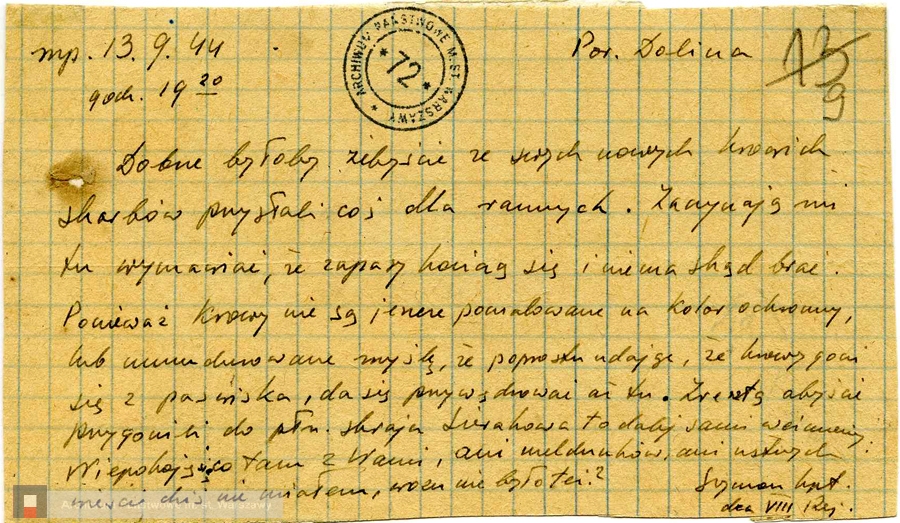 mp. 13.9.44 Por. Dolina 13/9
godz. 19 20
ARCHIWUM PAŃSTWOWE M. ST. WARSZAWY
72
Dobrze byłoby żebyście ze swych nowych krowich
skarbów przysłali coś dla rannych. Zaczynają mi
tu wymawiać, że zapasy kończą się i niema skąd brać.
Ponieważ krowy nie są jeszcze pomalowane na kolor ochronny,
lub umundurowane myślę, że poprostu udając, że krowy goni
się z pastwiska, da się przywędrować aż tu. Zresztą abyście
przygonili do płn. skraja Sierakowa to dalej sami weźmiemy.
Niepokoję się co tam z Wami, ani meldunków, ani ustnych
dziś nie miałem, wozu nie było też?
Szymon kpt.
dca VIII Rej.
Archiwum Państwowe m. st. Warszawy